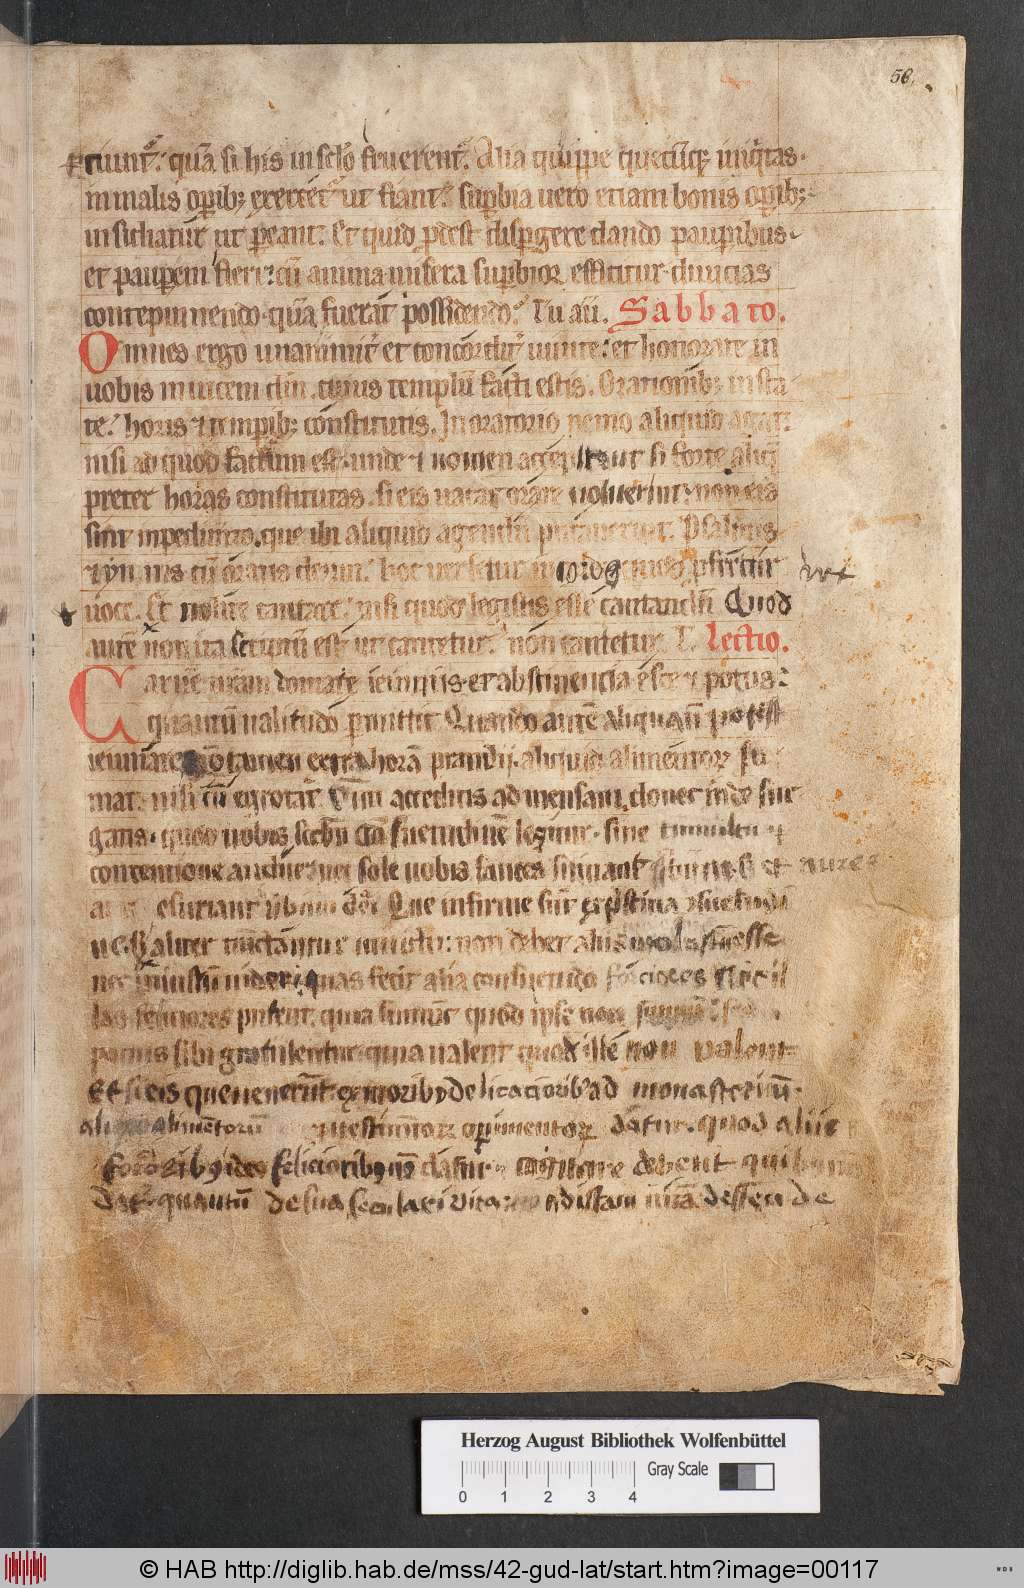 56.
fruunt². quā si his in sclo fruerent². Alia quippe quecūq; iniq̄tas.
in malis op̄ib; exercet² ut fiant². sup̄bia uero etiam bonis op̄ib;
insidiatur ut p̄eant. Et quid p̄dest disp̄gere dando paup̄ibus
et paup̄em fieri: cū anima misera sup̄bior efficitur diuicias
contempnnendo. quā fuerat possidendo². Tu aū. Sabbato.
Omnes ergo unanimit² et concordit² uiuite: et honorate in
uobis inuicem dm̄. cuius templū facti estis. Orationib; insta
te. horis & tempib; constitutis. In oratorio nemo aliquid agat:
nisi ad quod factum est. unde & nomen accepit ut si forte aliq̄
preter horas constitutas. si eis uacat orare uoluerint: non eis
sint inpedimto. que ibi aliquid agendū putauerint. Psalmis
& ymnis cū oratis deum. hoc uersetur in corde quod pfertur
uoce. Et nolite cantare: nisi quod legistis esse cantandū Quod
autē non ita scriptū est ut cantetur. non cantetur. T. Lectio.
Carnē uram domate ieiuniis et abstinencia esce & potus:
quantū ualitudo p̄mittit Quando autē aliquis non potest
ieiunare nō tamen extra horā prandii. aliquid alimentor su
mat. nisi cū egrotat. Cum acceditis ad mensam. donec inde sur
gatis. quod uobis scdm cō suetudinē legitur. sine tumultu &
contentione audite. nec sole uobis fauces sumant cibum. s; et aures
esuriant ūbum dei. Que infirme sūt ex p̄stina c̄suetudi
ne. si aliter tractantur in uictu: non debet aliis molestū esse
nec iniustū uideri. quas fecit alia consuetudo forciores Nec il
las feliciores putent. quia sumūt quod ipse non sumūt: sed
pocius sibi gratulentur. quia ualent quod ille non valent
Et si eis que uenerūt ex moribꝰ delicacioribꝰ ad monasteriū.
aliquid alimentorū uestimentor op̄imentor datur. quod aliis
forcioribꝰ et ideo feliciorībus nō datur. cogitare debent quibus nō
dat². quantū de sua seculari vita: ad istam illa descen de
Herzog August Bibliothek Wolfenbüttel
Gray Scale
0 1 2 3 4
© HAB http://diglib.hab.de/mss/42-gud-lat/start.htm?image=00117